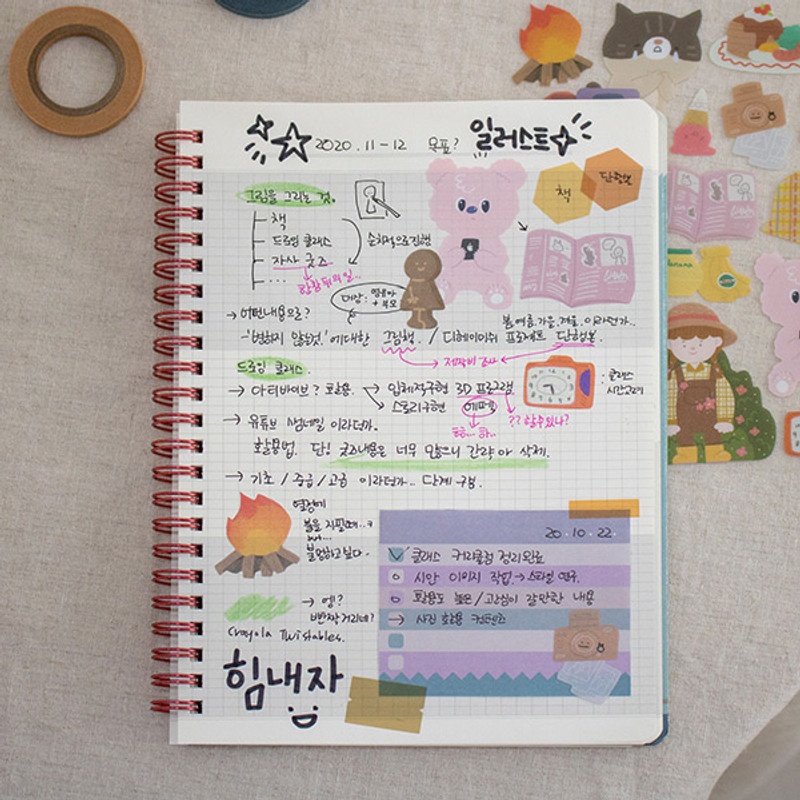 2020. 11 - 12 목표? 일러스트
그림을 그리는 것.
책
단행본
책
드로잉 클래스
순차적으로 진행
자사 굿즈
...
대상: 영유아 + 부모
→ 어떤 내용으로?
봄, 여름, 가을, 겨울. 이라던가..
- '변하지 않는 것.' 에 대한 그림책. / 디헤이미쉬 프로젝트 단행본.
→ 제작비 조사 ←
드로잉 클래스.
→ 아티바이브? 활용. → 입체적구현 3D 프로그램
스토리구현
: 클래스 시간 고려
?? 할 수 있나?
→ 유튜브 썸네일 이라던가.
활용법. 단! 굿즈내용은 너무 많으니 간략 or 삭제.
→ 기초 / 중급 / 고급 이라던가.. 단계 구분.
열정에
불을 지필 때..
불멍하고 싶다.
20. 10. 22.
클래스 커리큘럼 정리 완료
시안 이미지 작업. → 스타일 연구.
활용도 높은 / 관심이 갈만한 내용
→ 사진 활용 컨텐츠
→ 엥?
반짝거리네?
Crayola Twistables.
힘내자